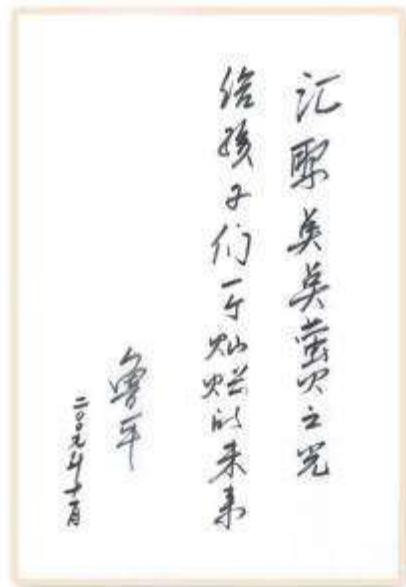 汇聚点点萤火之光
给孩子们一个灿烂的未来
鲁平
二〇〇九年十月